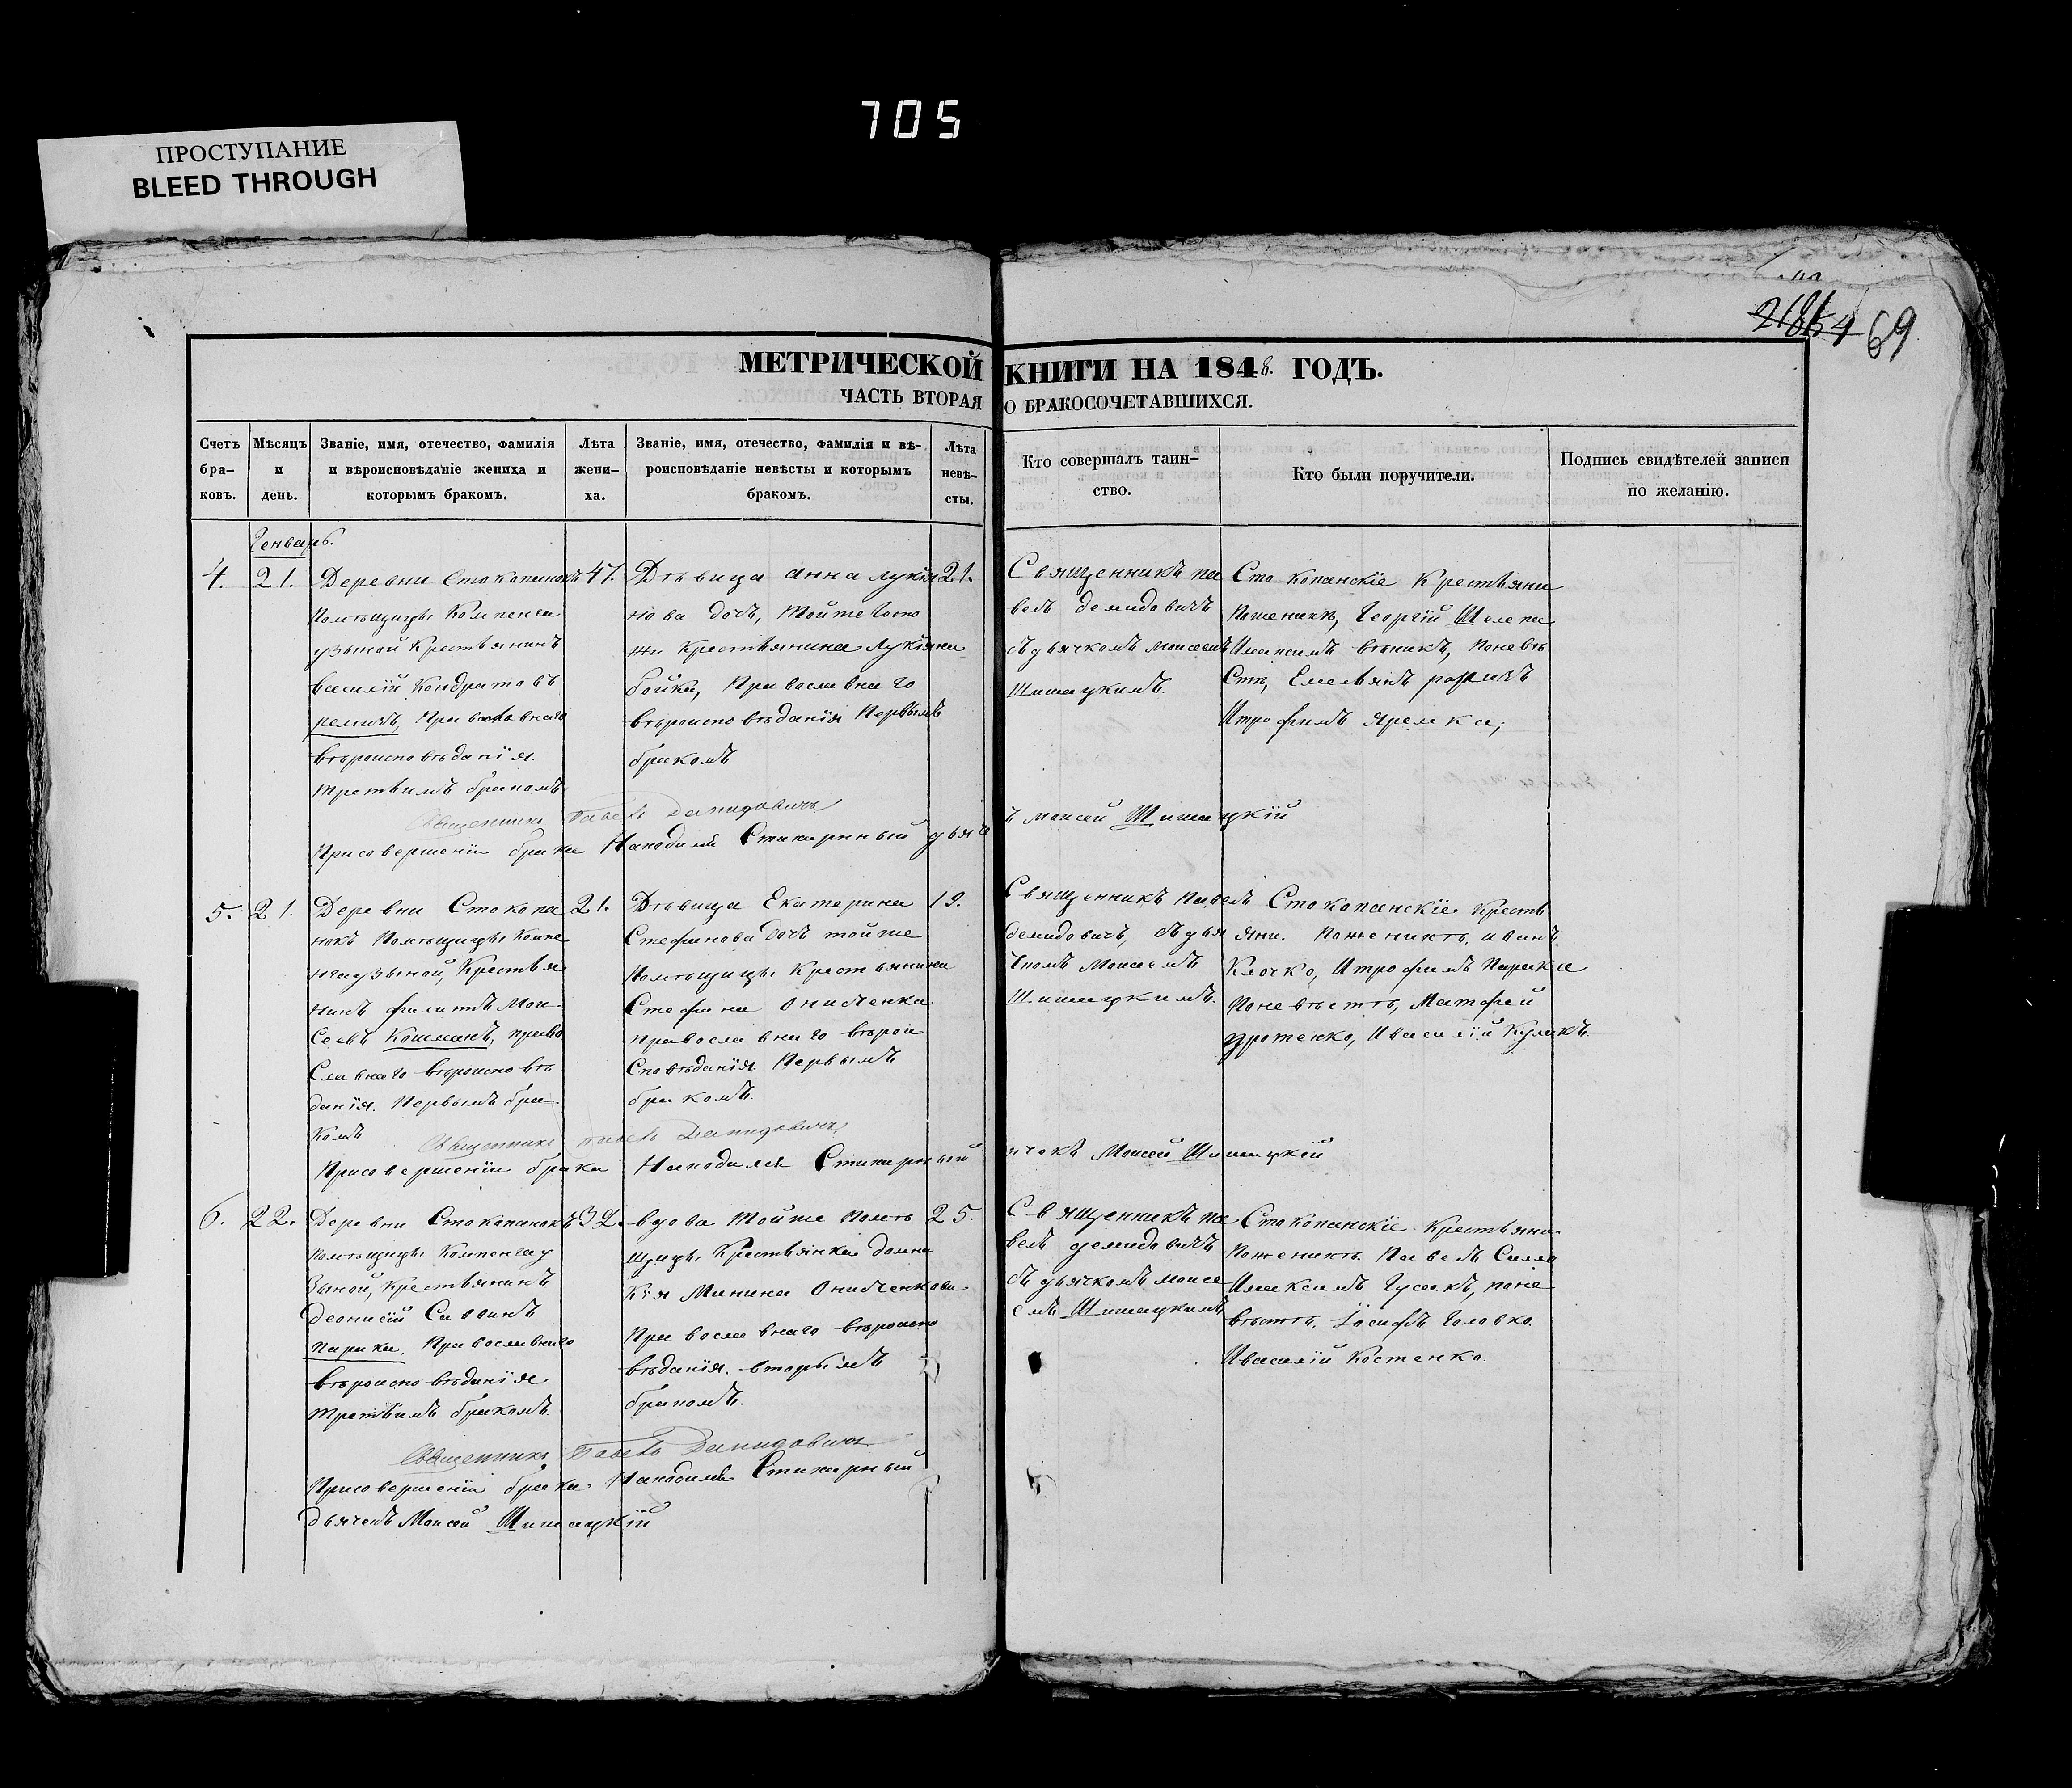 705
ПРОСТУПАНИЕ
BLEED THROUGH
69
МЕТРИЧЕСКОЙ КНИГИ НА 1848. ГОДЪ.
ЧАСТЬ ВТОРАЯ О БРАКОСОЧЕТАВШИХСЯ.
Счетъ бра-ковъ.
Мѣсяцъ и день.
Званіе, имя, отечество, фамилія
и вѣроисповѣданіе жениха и
которымъ бракомъ.
Лѣта жени-ха.
Званіе, имя, отечество, фамилія и вѣ-
роисповѣданіе невѣсты и которымъ
бракомъ.
Лѣта невѣ-сты.
Кто совершалъ таин-
ство.
Кто были поручители.
Подпись свидѣтелей записи
по желанію.
Генварь.
4. 21.
Деревни Стокопанокъ
Помѣщицы
Крестьянинъ
василій Кондратовъ
Православнаго
вѣроисповѣданія.
третьимъ бракомъ
47.
Дѣвица анна лукія
нова дочь, тойже Госпо
жи Крестьянина Лукіяна
бойка, Православнаго
вѣроисповѣданія Первымъ
бракомъ
21.
Священникъ па
велъ демидовичъ
съ дьячкомъ моисеемъ
Шишацкимъ.
Сто копанскіе Крестьяни
Поженихѣ, Георгій
Поневѣ
Стѣ, Емельянъ
Итрофимъ яремка;
Священникъ Павелъ Демидовичъ
Присовершеніи брака Находился Стихарный дьяче
ъ моисей Шишацкій
5. 21.
Деревни Стокопа
нокъ Помѣщицы
Крестья
нинъ филиппъ Мои
сеевъ Кошманъ, право
Славнаго вѣроисповѣ
данія. Первымъ бра-
комъ
21.
Дѣвица Екатерина
Стефанова дочь тойже
Помѣщицы Крестьянина
Стефана Онищенка
православнаго вѣрои
Сповѣданія. Первымъ
бракомъ.
19.
Священникъ Павелъ
демидовичъ, съ дья
чкомъ Моисеемъ
Шишацкимъ.
Стокопанскіе Кресть
яни. Поженихѣ, иванъ
Клочко, Итрофимъ Парака
Поневѣстѣ, Матфей
Ивасилій Куликъ.
Священникъ Павелъ Демидовичъ
Присовершеніи брака Находился Стихарный
ячекъ Моисей Шишацкій
6. 22.
Деревни Стокопанокъ
Помѣщицы
Крестьянинъ
Деонисій Саввинъ
Парака, Православнаго
вѣроисповѣданія
третьимъ бракомъ.
32.
вдова тойже Помѣ
щицы Крестьянка домни
кія Минина Онищенкова
Православнаго вѣроиспо
вѣданія. вторымъ
бракомъ.
25.
Священникъ па
велъ демидовичъ
съ дьячкомъ моисе
емъ Шишацкимъ
Стокопанскіе Крестьяни
Поженихѣ Павелъ
Имаксимъ Гусакъ, поне
вѣстѣ. Іосифъ Головко.
Ивасилій Костенко.
Священникъ Павелъ Демидовичъ
Присовершеніи брака Находился Стихарный
дьячекъ Моисей Шишацкій